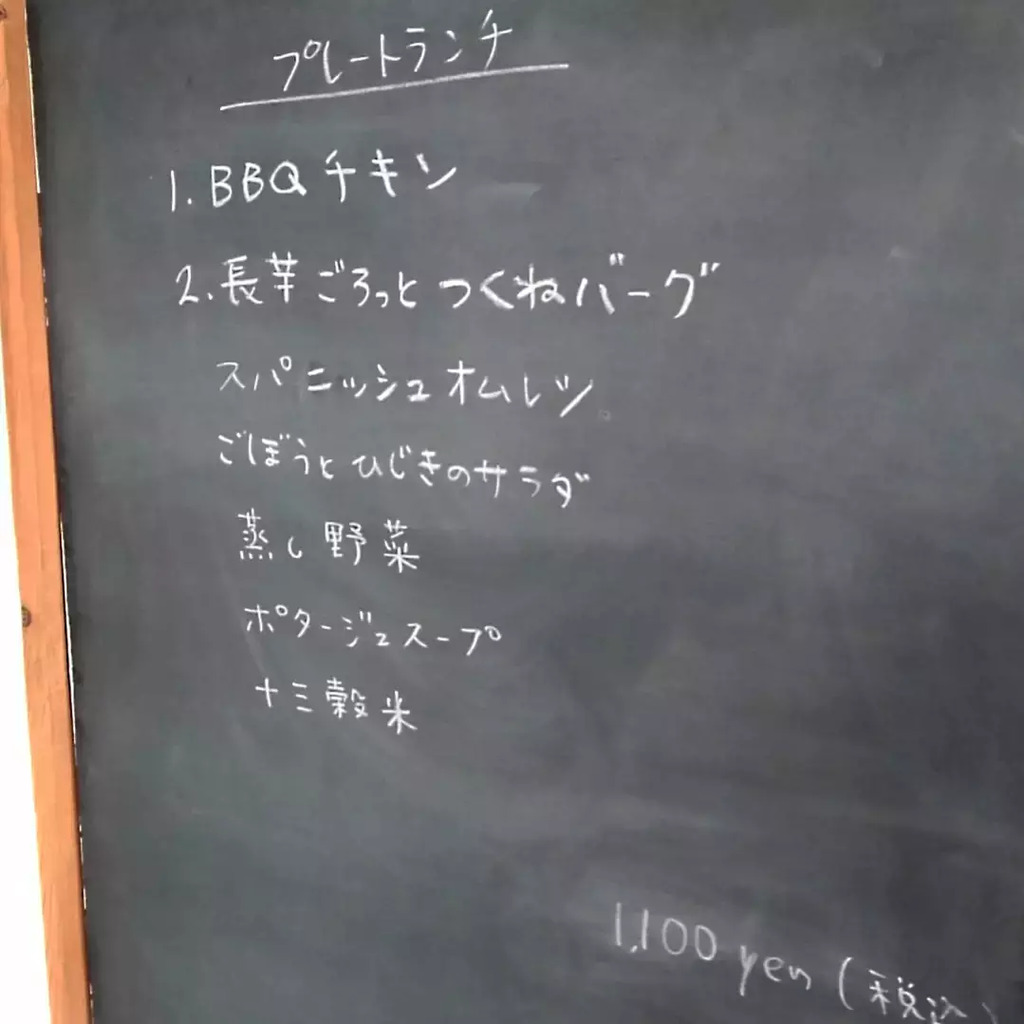 プレートランチ
1. BBQチキン
2. 長芋ごろっとつくねバーグ
スパニッシュオムレツ
ごぼうとひじきのサラダ
蒸し野菜
ポタージュスープ
十三穀米
1,100 yen (税込)